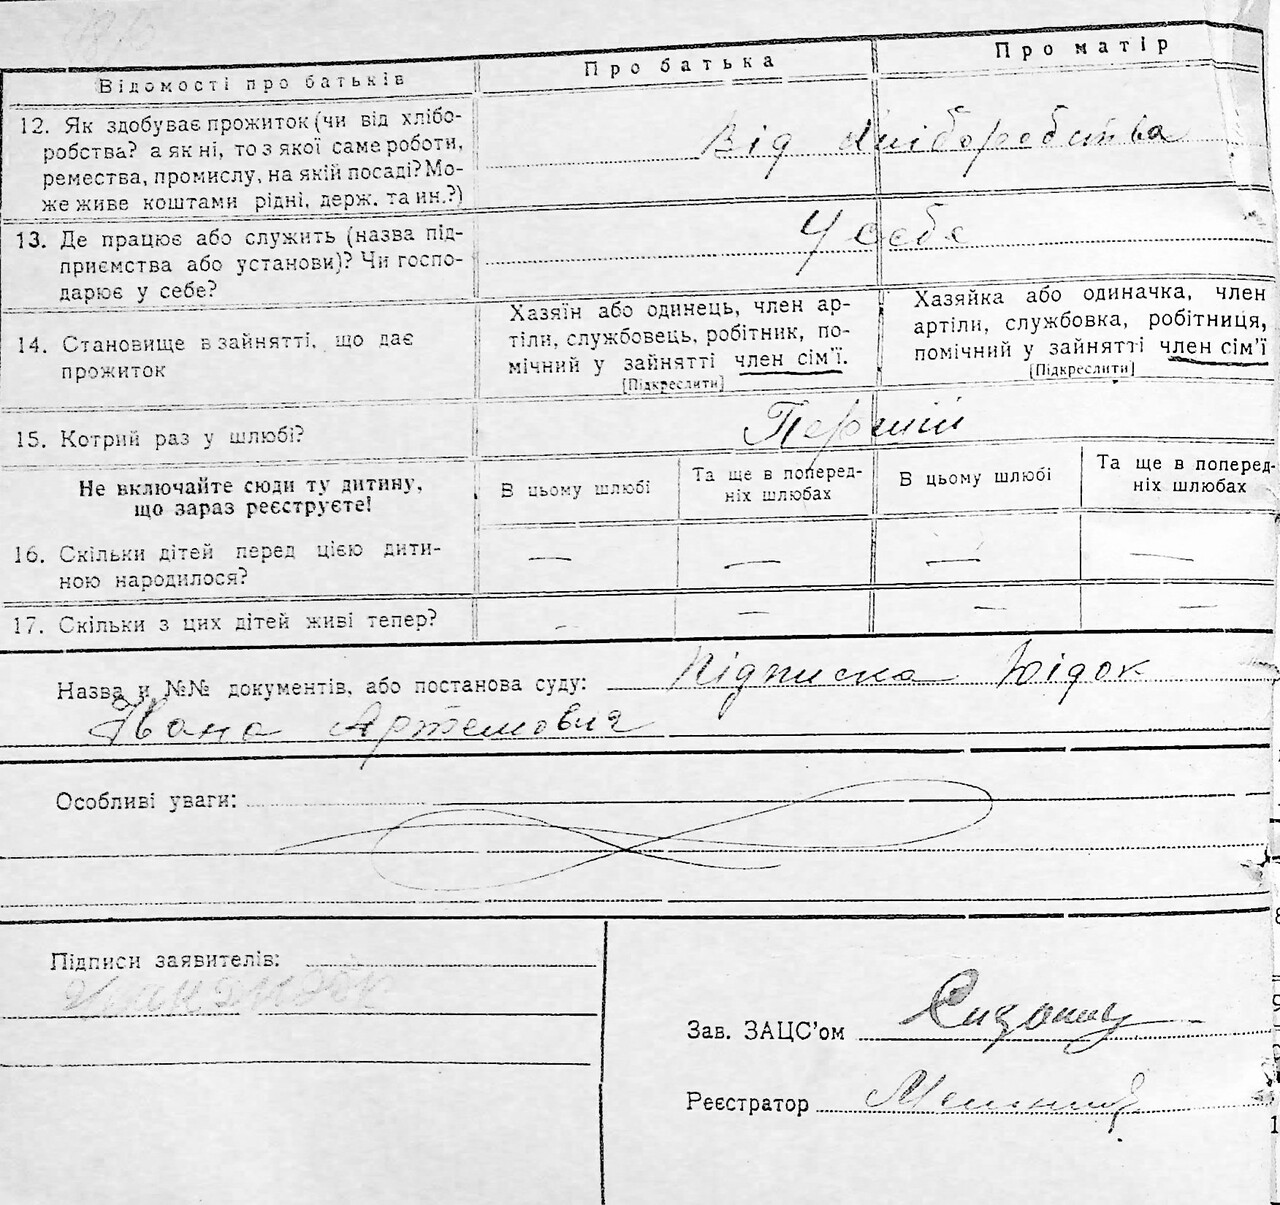 Відомості про батьків
Про батька
Про матір
12. Як здобуває прожиток (чи від хлібо-
робства? а як ні, то з якої саме роботи,
ремества, промислу, на якій посаді? Мо-
же живе коштами рідні, держ. та ин.?)
Від хліборобства
13. Де працює або служить (назва під-
приємства або установи)? Чи госпо-
дарює у себе?
У себе
14. Становище в зайнятті, що дає
прожиток
Хазяїн або одинець, член ар-
тіли, службовець, робітник, по-
мічний у зайнятті член сім’ї.
[Підкреслити]
Хазяйка або одиначка, член
артіли, службовка, робітниця,
помічний у зайнятті член сім’ї
[Підкреслити]
15. Котрий раз у шлюбі?
Перший
Не включайте сюди ту дитину,
що зараз реєструєте!
В цьому шлюбі
Та ще в поперед-
ніх шлюбах
В цьому шлюбі
Та ще в поперед-
ніх шлюбах
16. Скільки дітей перед цією дити-
ною народилося?
— — — —
17. Скільки з цих дітей живі тепер?
— — — —
Назва и №№ документів, або постанова суду: Підписка
Івана Артемовия
Особливі уваги:
Підписи заявителів:
Зав. ЗАЦС’ом
Реєстратор